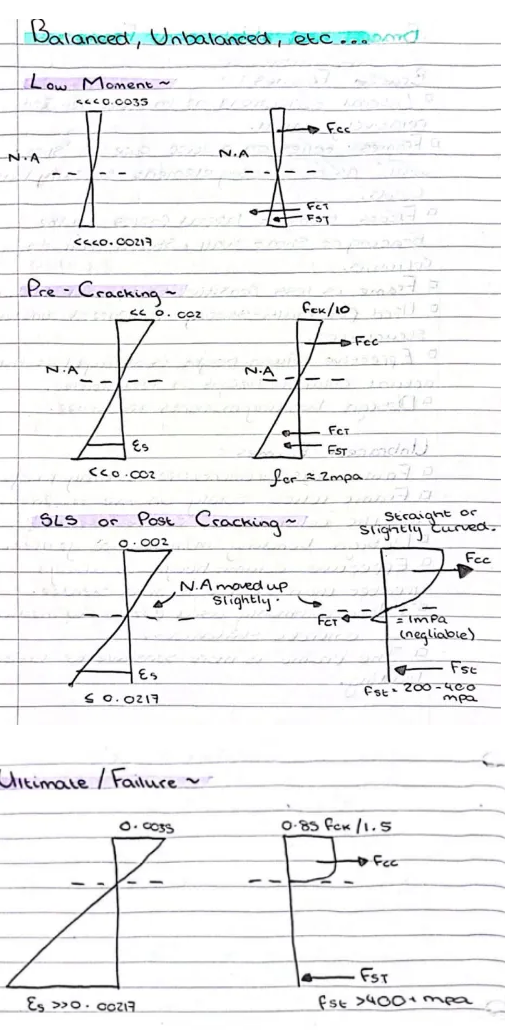 Balanced, Unbalanced, etc...
Low Moment ~
<<<0.0035
Fcc
N.A
N.A
FCT
FST
<<<0.00217
Pre-Cracking ~
<< 0.002
fck/10
Fcc
N.A
N.A
Es
FCT
FST
<<0.002
fcr ≈ 2mpa
SLS or Post Cracking ~
Straight or
Slightly Curved.
0.002
Fcc
N.A moved up
Slightly.
FCT
= 1mpa
(negliable)
Es
Fst
≤ 0.0217
Fst = 200-400
mpa
Ultimate / Failure ~
0.0035
0.85 fck/1.5
Fcc
FST
Es >>0.00217
fst >400+ mpa